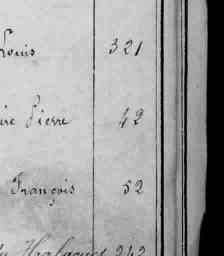 Louis 321
Pierre 42
François 52
243